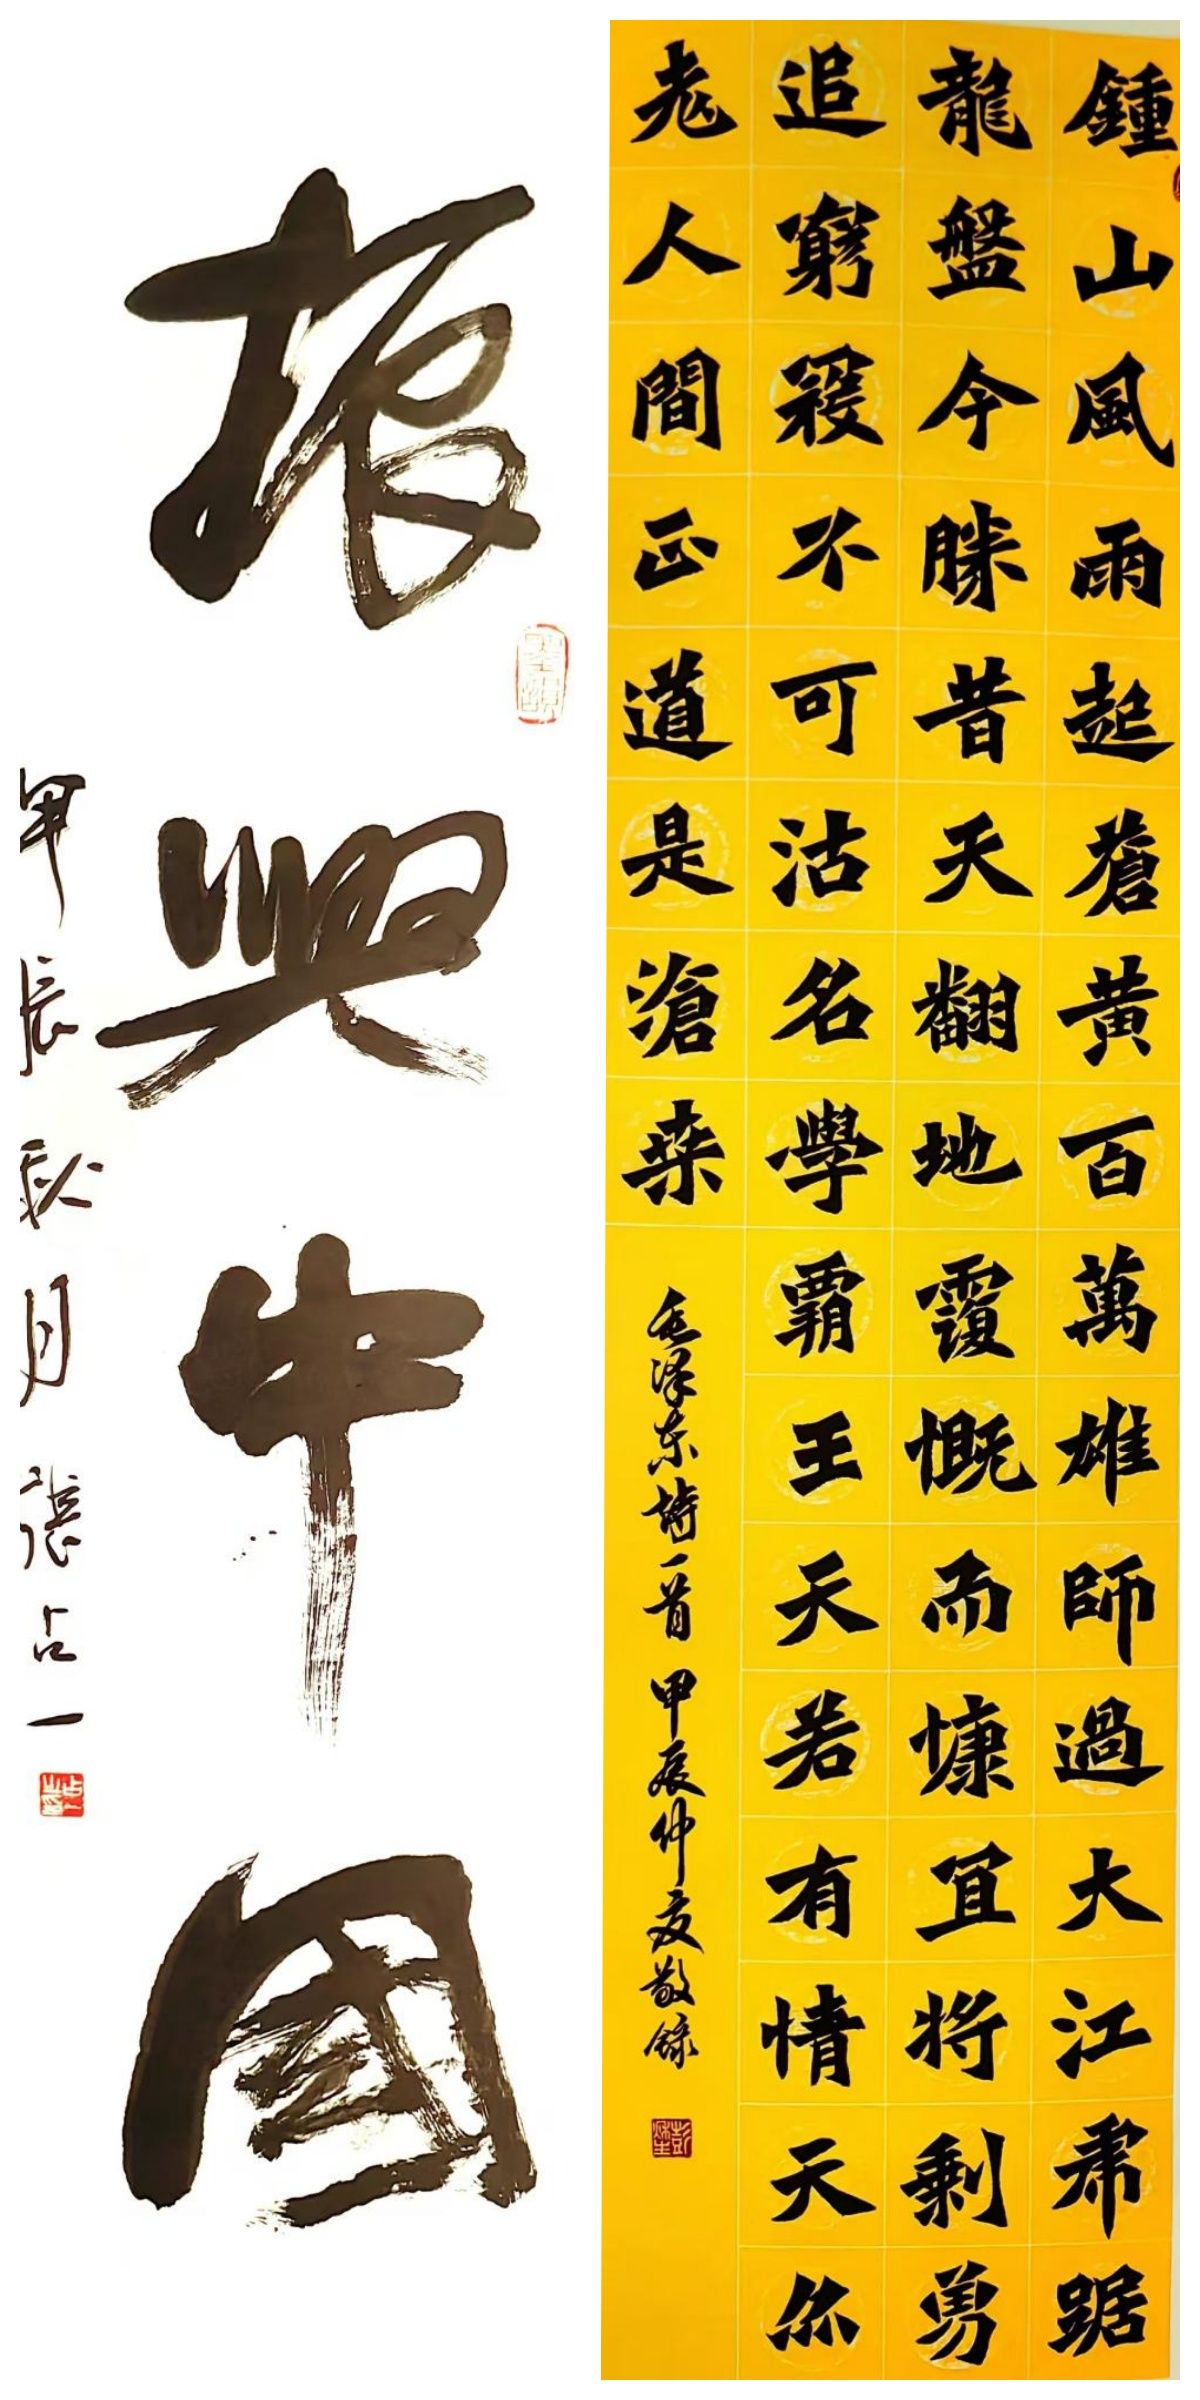 振興中國
甲辰秋月張占一
鍾山風雨起蒼黃百萬雄師過大江虎踞
龍盤今勝昔天翻地覆慨而慷宜將剩勇
追窮寇不可沽名學霸王天若有情天亦
老人間正道是滄桑
毛泽东诗一首 甲辰仲夏敬錄